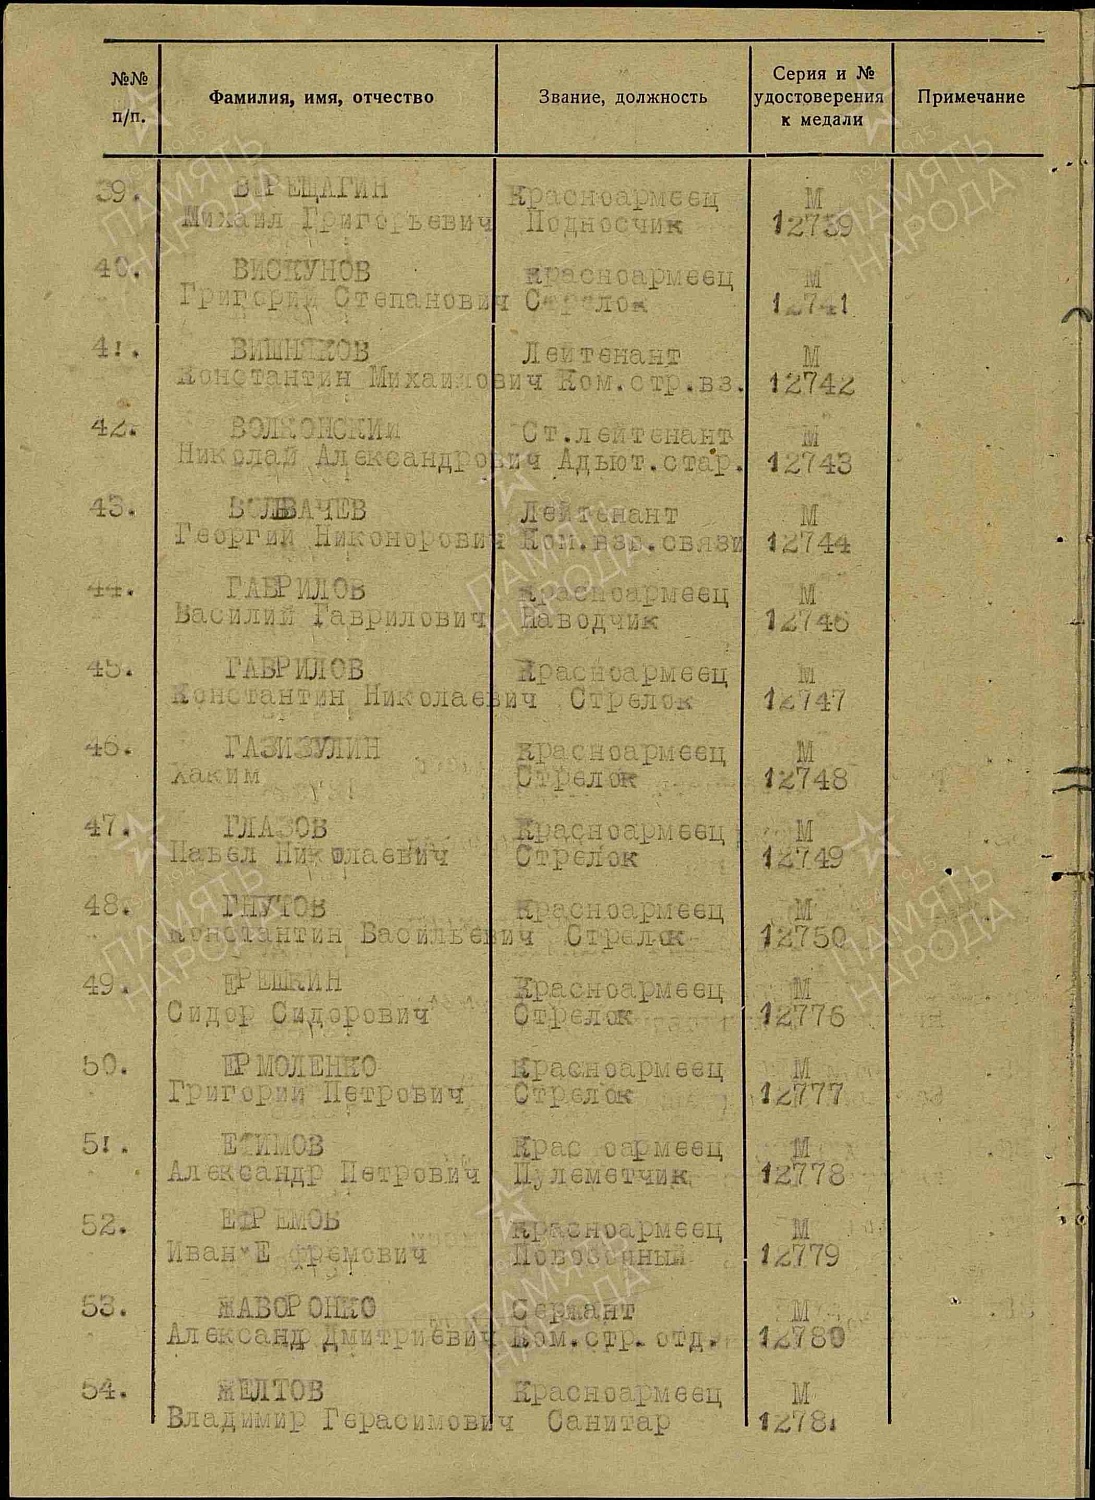 №№ п/п. Фамилия, имя, отчество Звание, должность Серия и № удостоверения к медали Примечание
39. ВЕРЕЩАГИН Красноармеец М
Михаил Григорьевич Подносчик 12739
40. ВИСКУНОВ Красноармеец М
Григорий Степанович Стрелок 12741
41. ВИШНЯКОВ Лейтенант М
Константин Михайлович Ком.стр.вз. 12742
42. ВОЛКОНСКИЙ Ст.лейтенант М
Николай Александрович Адьют.стар. 12743
43. ВОЛЬВАЧЕВ Лейтенант М
Георгий Никонорович Ком.взв.связи 12744
44. ГАВРИЛОВ Красноармеец М
Василий Гаврилович Наводчик 12746
45. ГАВРИЛОВ Красноармеец М
Константин Николаевич Стрелок 12747
46. ГАЗИЗУЛИН Красноармеец М
Хаким Стрелок 12748
47. ГЛАЗОВ Красноармеец М
Павел Николаевич Стрелок 12749
48. ГНУТОВ Красноармеец М
Константин Васильевич Стрелок 12750
49. ЕРЕШКИН Красноармеец М
Сидор Сидорович Стрелок 12776
50. ЕРМОЛЕНКО Красноармеец М
Григорий Петрович Стрелок 12777
51. ЕФИМОВ Крас оармеец М
Александр Петрович Пулеметчик 12778
52. ЕФРЕМОВ Красноармеец М
Иван Е фремович Повозочный 12779
53. ЖАВОРОНКО Сержант М
Александр Дмитриевич Ком.стр.отд. 12780
54. ЖЕЛТОВ Красноармеец М
Владимир Герасимович Санитар 12781
ПАМЯТЬ НАРОДА
ПАМЯТЬ НАРОДА
ПАМЯТЬ НАРОДА
ПАМЯТЬ НАРОДА
ПАМЯТЬ НАРОДА
ПАМЯТЬ НАРОДА